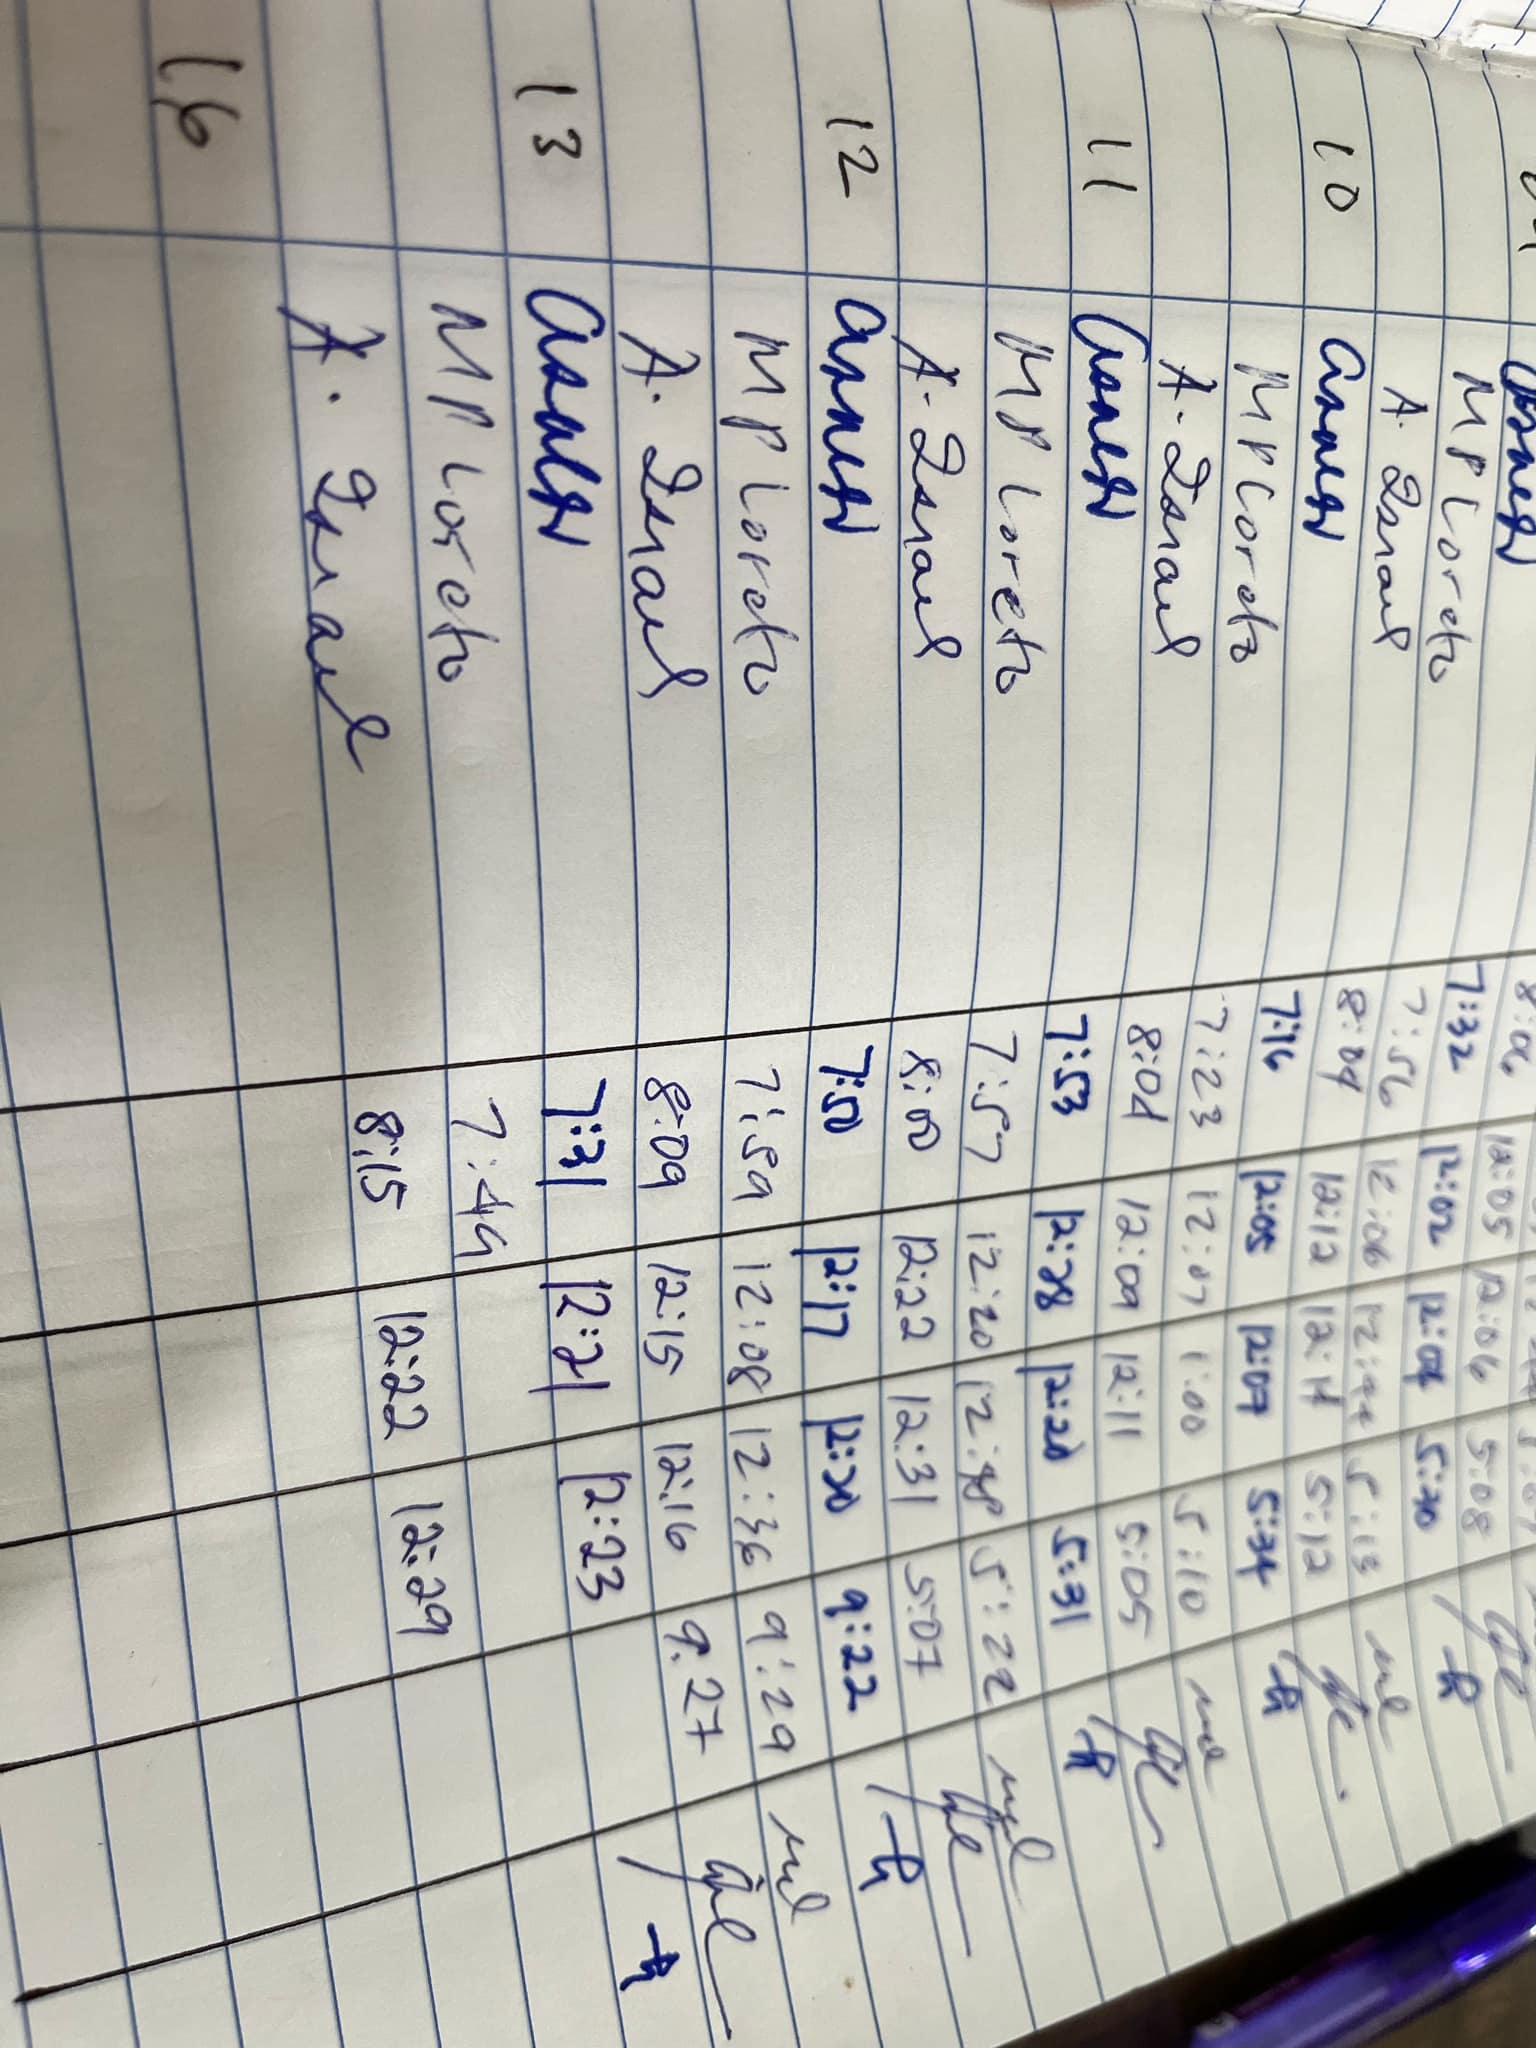 8:06 12:05 12:06 5:08
7:32 12:02 5:30
MP Loreto 7:56 12:06 5:13
A. Israel 8:04 12:12 12:14 5:12
10 7:16 12:05 12:07 5:34
MP Loreto 7:23 12:07 1:00 5:10
A. Israel 8:04 12:09 12:11 5:05
11 7:53 12:28 5:31
MP Loreto 7:57 12:20 12:48 5:22
A. Israel 8:00 12:22 12:31 5:07
12 7:50 12:17 12:20 9:22
MP Loreto 7:59 12:08 12:36 9:29
A. Israel 8:09 12:15 12:16 9:27
13 7:31 12:21 12:23
MP Loreto 7:49
A. Israel 8:15 12:22 12:29
16